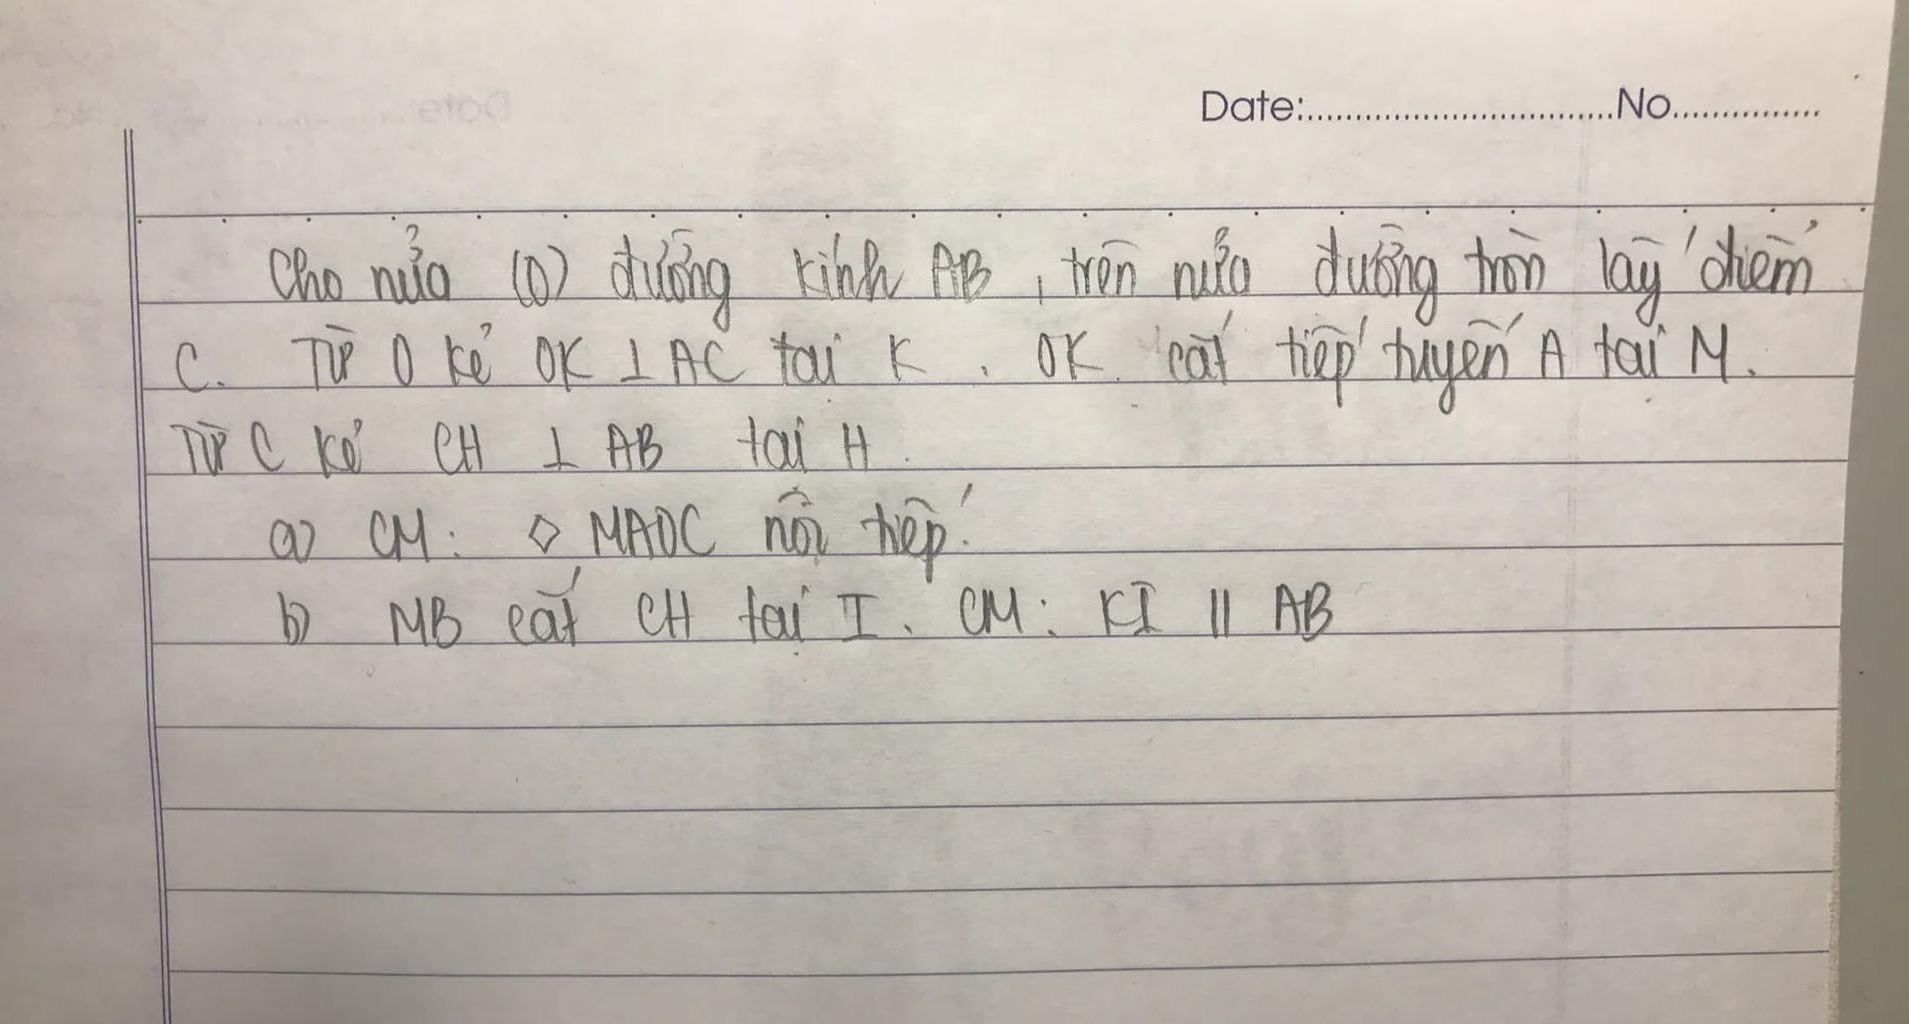 Date:..................................No................
Cho nửa (O) đường kính AB, trên nửa đường tròn lấy điểm
C. Từ O kẻ OK ⊥ AC tại K. OK cắt tiếp tuyến A tại M.
Từ C kẻ CH ⊥ AB tại H.
a) CM: ◇ MAOC nội tiếp.
b) MB cắt CH tại I. CM: KI || AB